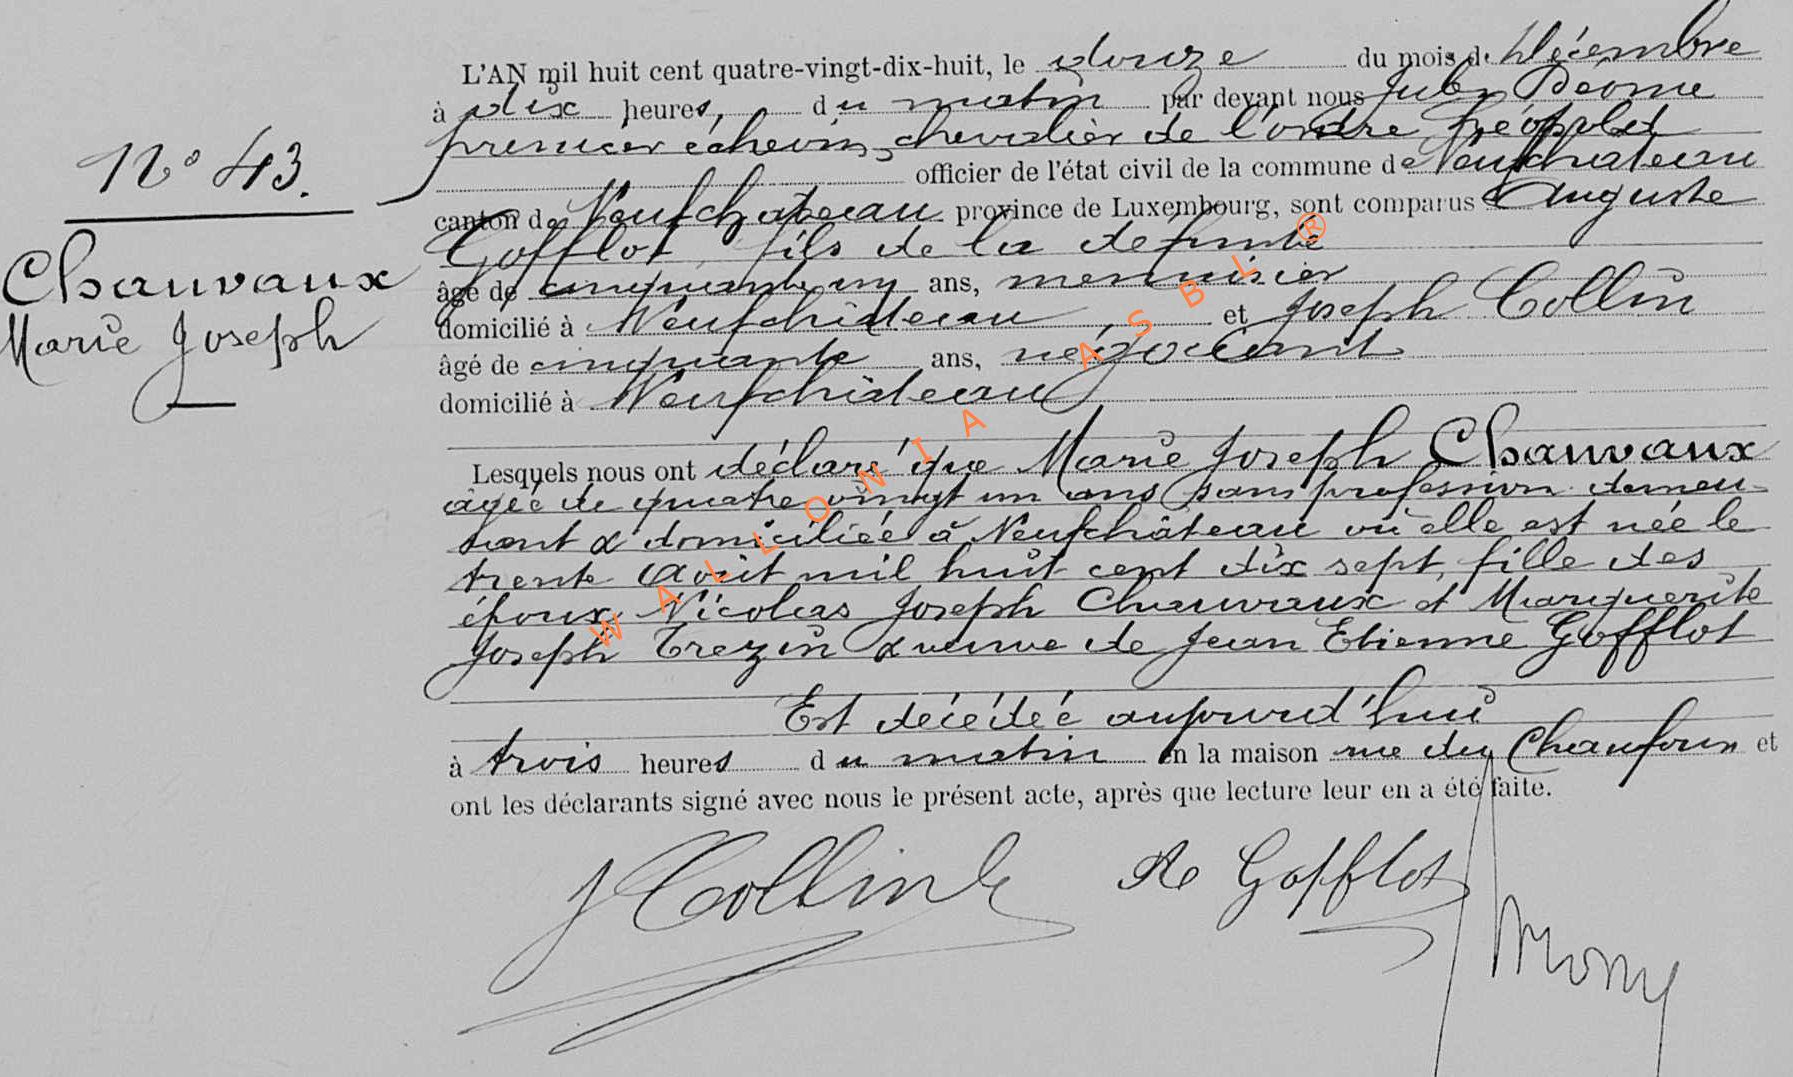 N° 43.
Chauvaux
Marie Joseph
L'AN mil huit cent quatre-vingt-dix-huit, le douze du mois de Décembre
à dix heures, du matin par devant nous Jules
premier échevin, chevalier de l'ordre Léopold
officier de l'état civil de la commune de Neufchateau
canton de Neufchateau province de Luxembourg, sont comparus Auguste
Gofflot, fils de la defunte
âgé de cinquante un ans, menuisier
domicilié à Neufchâteau et Joseph Collin
âgé de cinquante ans, négociant
domicilié à Neufchâteau
Lesquels nous ont déclaré que Marie Joseph Chauvaux
agée de quatre vingt un ans sans profession demeu-
rant & domiciliée à Neufchâteau où elle est née le
trente Août mil huit cent dix sept, fille des
époux Nicolas Joseph Chauvaux et Marguerite
Joseph Trezin & veuve de Jean Etienne Gofflot
Est décédée aujourd'hui
à trois heures du matin en la maison rue du Chaufour et
ont les déclarants signé avec nous le présent acte, après que lecture leur en a été faite.
J Collin A Gofflot
WALLONIA ASBL ®